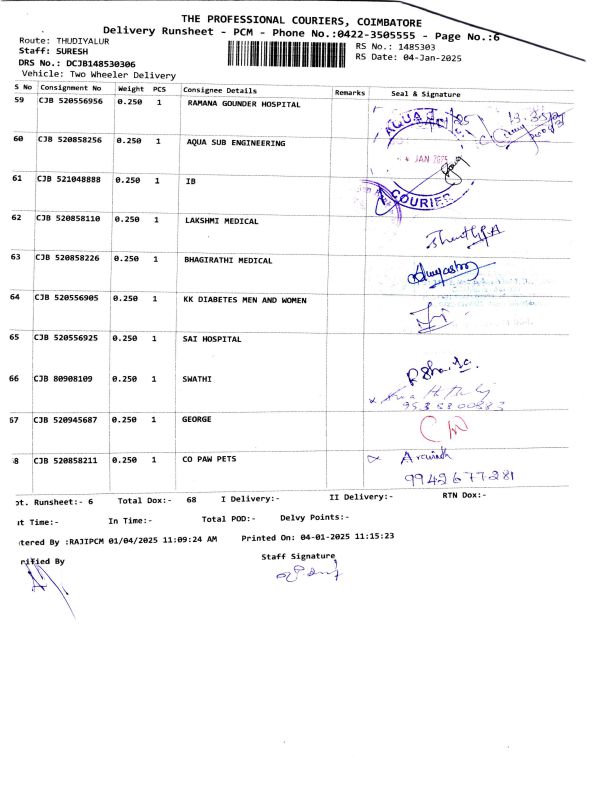 THE PROFESSIONAL COURIERS, COIMBATORE
Delivery Runsheet - PCM - Phone No.:0422-3505555 - Page No.:6
Route: THUDIYALUR
RS No.: 1485303
Staff: SURESH
RS Date: 04-Jan-2025
DRS No.: DCJB148530306
Vehicle: Two Wheeler Delivery
S No Consignment No Weight PCS Consignee Details Remarks Seal & Signature
59 CJB 520556956 0.250 1 RAMANA GOUNDER HOSPITAL
60 CJB 520858256 0.250 1 AQUA SUB ENGINEERING
AQUA
JAN 2025
61 CJB 521048888 0.250 1 IB
COURIER
62 CJB 520858110 0.250 1 LAKSHMI MEDICAL
63 CJB 520858226 0.250 1 BHAGIRATHI MEDICAL
64 CJB 520556905 0.250 1 KK DIABETES MEN AND WOMEN
65 CJB 520556925 0.250 1 SAI HOSPITAL
66 CJB 80908109 0.250 1 SWATHI
67 CJB 520945687 0.250 1 GEORGE
8 CJB 520858211 0.250 1 CO PAW PETS
9942677281
ot. Runsheet:- 6 Total Dox:- 68 I Delivery:- II Delivery:- RTN Dox:-
ut Time:- In Time:- Total POD:- Delvy Points:-
tered By :RAJIPCM 01/04/2025 11:09:24 AM Printed On: 04-01-2025 11:15:23
rified By Staff Signature